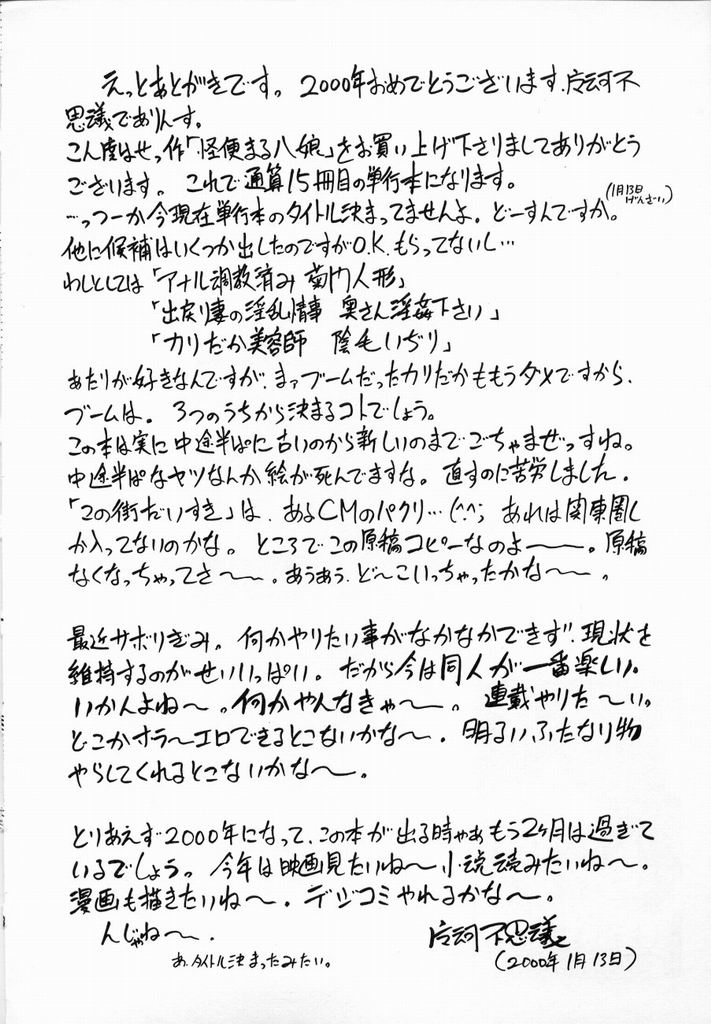 えっとあとがきです。2000年おめでとうございます、片河不
思議でありんす。
こん度はせっ作「怪便まる八娘」をお買い上げ下さりましてありがとう
ございます。これで通算15冊目の単行本になります。
…っつーか今現在単行本のタイトル決まってませんよ。どーすんですか。(1月13日げんざい)
他に候補はいくつか出したのですがO.K.もらってないし…
わしとしては「アナル調教済み 菊門人形」
「出戻り妻の淫乱情事 奥さん淫姦下さい」
「カリだか美容師 陰毛いぢり」
あたりが好きなんですが、まァブームだったカリだかももうダメですから、
ブームは。3つのうちから決まるコトでしょう。
この本は実に中途半ぱに古いのから新しいのまでごちゃまぜっすね。
中途半ぱなヤツなんか絵が死んでますな。直すのに苦労しました。
「この街だいすき」は、あるCMのパクリ…(^.^; あれは関東圏し
か入ってないのかな。ところでこの原稿コピーなのよ———。原稿
なくなっちゃってさ〜〜。あうあう、ど〜こいっちゃったかな〜〜。
最近サボりぎみ。何かやりたい事がなかなかできず、現状を
維持するのがせいいっぱい。だから今は同人が一番楽しい。
いかんよね〜。何かやんなきゃ〜。連載やりた〜い。
どこかオラ〜エロできるとこないかな〜。明るいふたなり物
やらしてくれるとこないかな〜。
とりあえず2000年になって、この本が出る時ゃあもう2ヶ月は過ぎて
いるでしょう。今年は映画見たいね〜小説読みたいね〜。
漫画も描きたいね〜。デジコミやれるかな〜。
んじゃね〜。
片河不思議
あ、タイトル決まったみたい。
(2000年1月13日)